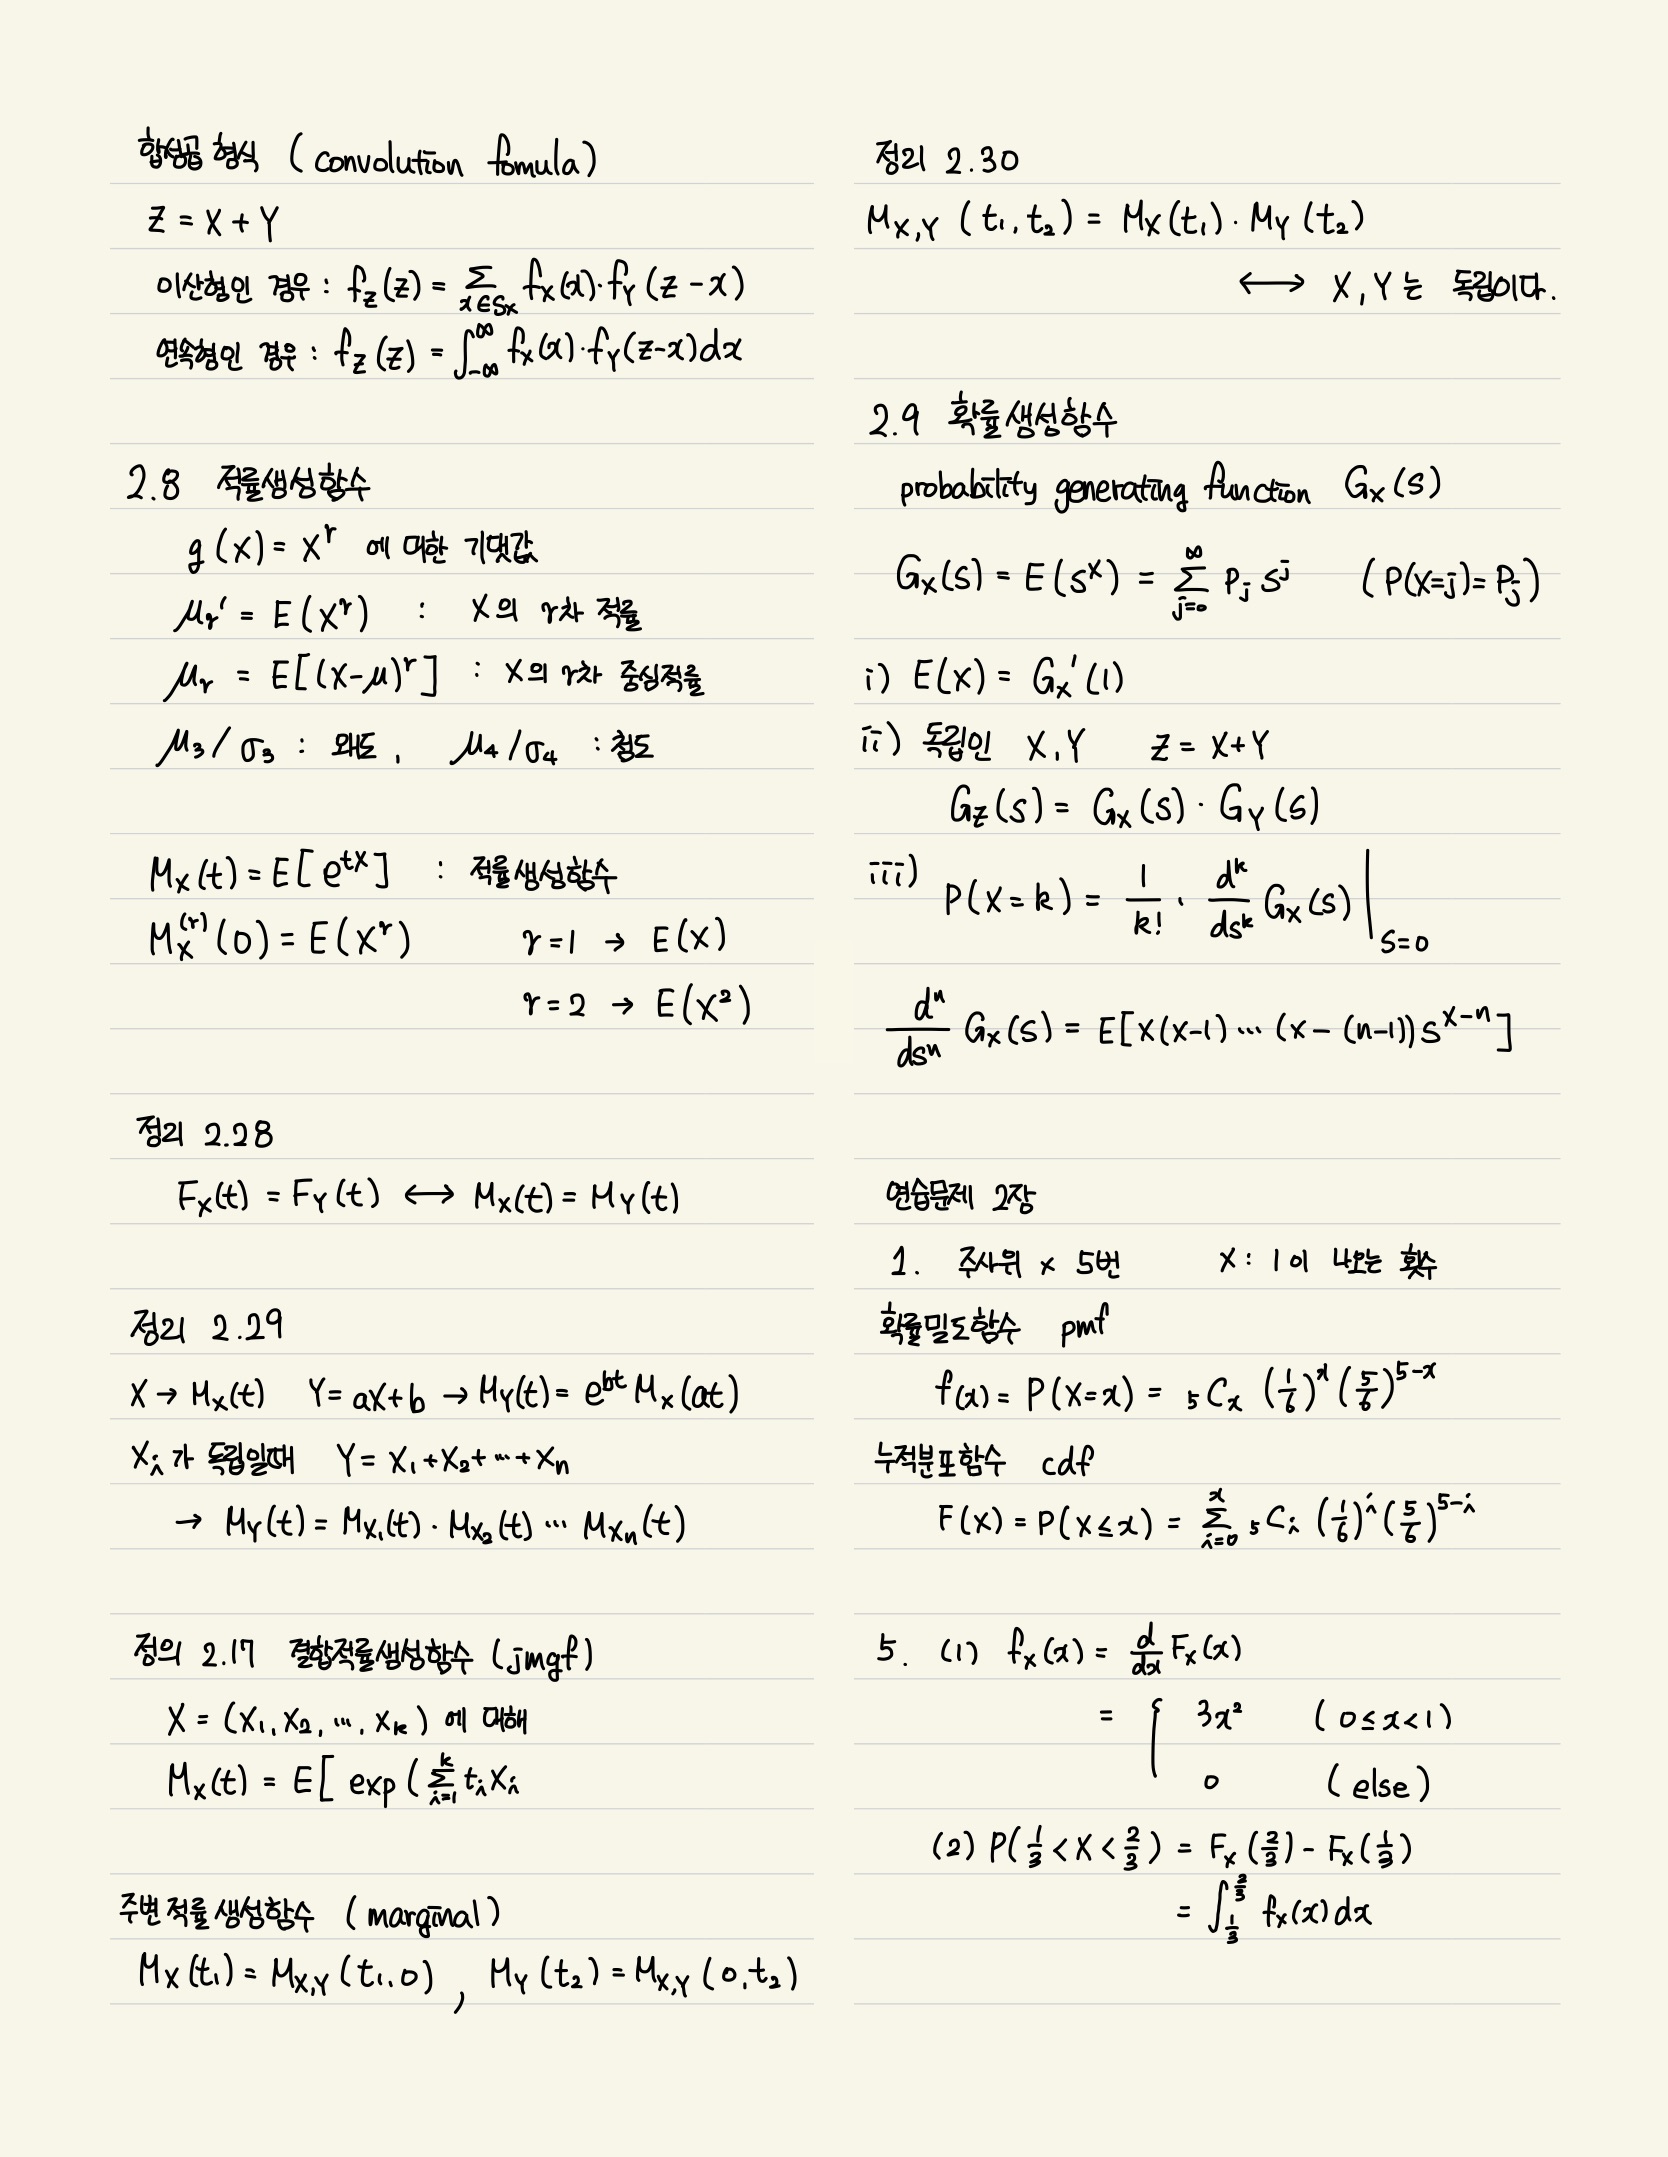 합성곱 형식 (convolution fomula)
Z = X + Y
이산형인 경우 : f_Z(z) = Σ_{x∈S_X} f_X(x)·f_Y(z-x)
연속형인 경우 : f_Z(z) = ∫_{-∞}^{∞} f_X(x)·f_Y(z-x)dx
2.8 적률생성함수
g(X) = X^r 에 대한 기댓값
μ_r' = E(X^r) : X의 r차 적률
μ_r = E[(X-μ)^r] : X의 r차 중심적률
μ_3/σ_3 : 왜도, μ_4/σ_4 : 첨도
M_X(t) = E[e^{tX}] : 적률생성함수
M_X^{(r)}(0) = E(X^r) r=1 → E(X)
r=2 → E(X^2)
정리 2.28
F_X(t) = F_Y(t) ⟷ M_X(t) = M_Y(t)
정리 2.29
X → M_X(t) Y = aX+b → M_Y(t) = e^{bt} M_X(at)
X_i 가 독립일때 Y = X_1+X_2+…+X_n
→ M_Y(t) = M_{X_1}(t)·M_{X_2}(t) … M_{X_n}(t)
정의 2.17 결합적률생성함수 (jmgf)
X = (X_1, X_2, …, X_k) 에 대해
M_X(t) = E[ exp ( Σ_{i=1}^{k} t_i X_i
주변적률생성함수 (marginal)
M_X(t_1) = M_{X,Y}(t_1, 0) , M_Y(t_2) = M_{X,Y}(0, t_2)
정리 2.30
M_{X,Y}(t_1, t_2) = M_X(t_1)·M_Y(t_2)
⟷ X, Y는 독립이다.
2.9 확률생성함수
probability generating function G_X(s)
G_X(s) = E(s^X) = Σ_{j=0}^{∞} P_j s^j (P(X=j) = P_j)
i) E(X) = G_X'(1)
ii) 독립인 X, Y Z = X+Y
G_Z(s) = G_X(s)·G_Y(s)
iii) P(X=k) = 1/k! · d^k/ds^k G_X(s) |_{s=0}
d^n/ds^n G_X(s) = E[X(X-1)…(X-(n-1))s^{X-n}]
연습문제 2장
1. 주사위 × 5번 X : 1이 나오는 횟수
확률밀도함수 pmf
f(x) = P(X=x) = ₅C_x (1/6)^x (5/6)^{5-x}
누적분포함수 cdf
F(x) = P(X≤x) = Σ_{i=0}^{x} ₅C_i (1/6)^i (5/6)^{5-i}
5. (1) f_X(x) = d/dx F_X(x)
= { 3x² (0≤x<1)
0 (else)
(2) P(1/3 < X < 2/3) = F_X(2/3) - F_X(1/3)
= ∫_{1/3}^{2/3} f_X(x)dx